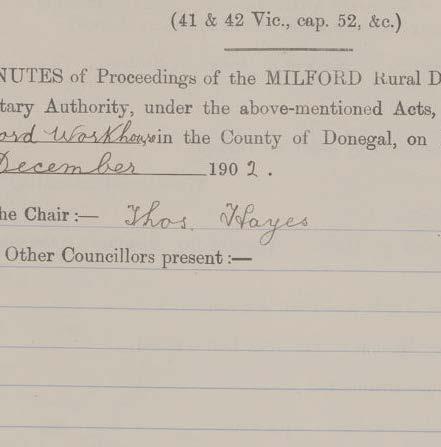 (41 & 42 Vic., cap. 52, &c.)
NUTES of Proceedings of the MILFORD Rural D
tary Authority, under the above-mentioned Acts,
ord Workhouse in the County of Donegal, on
December 1902.
he Chair :— Thos. Hayes
Other Councillors present :—